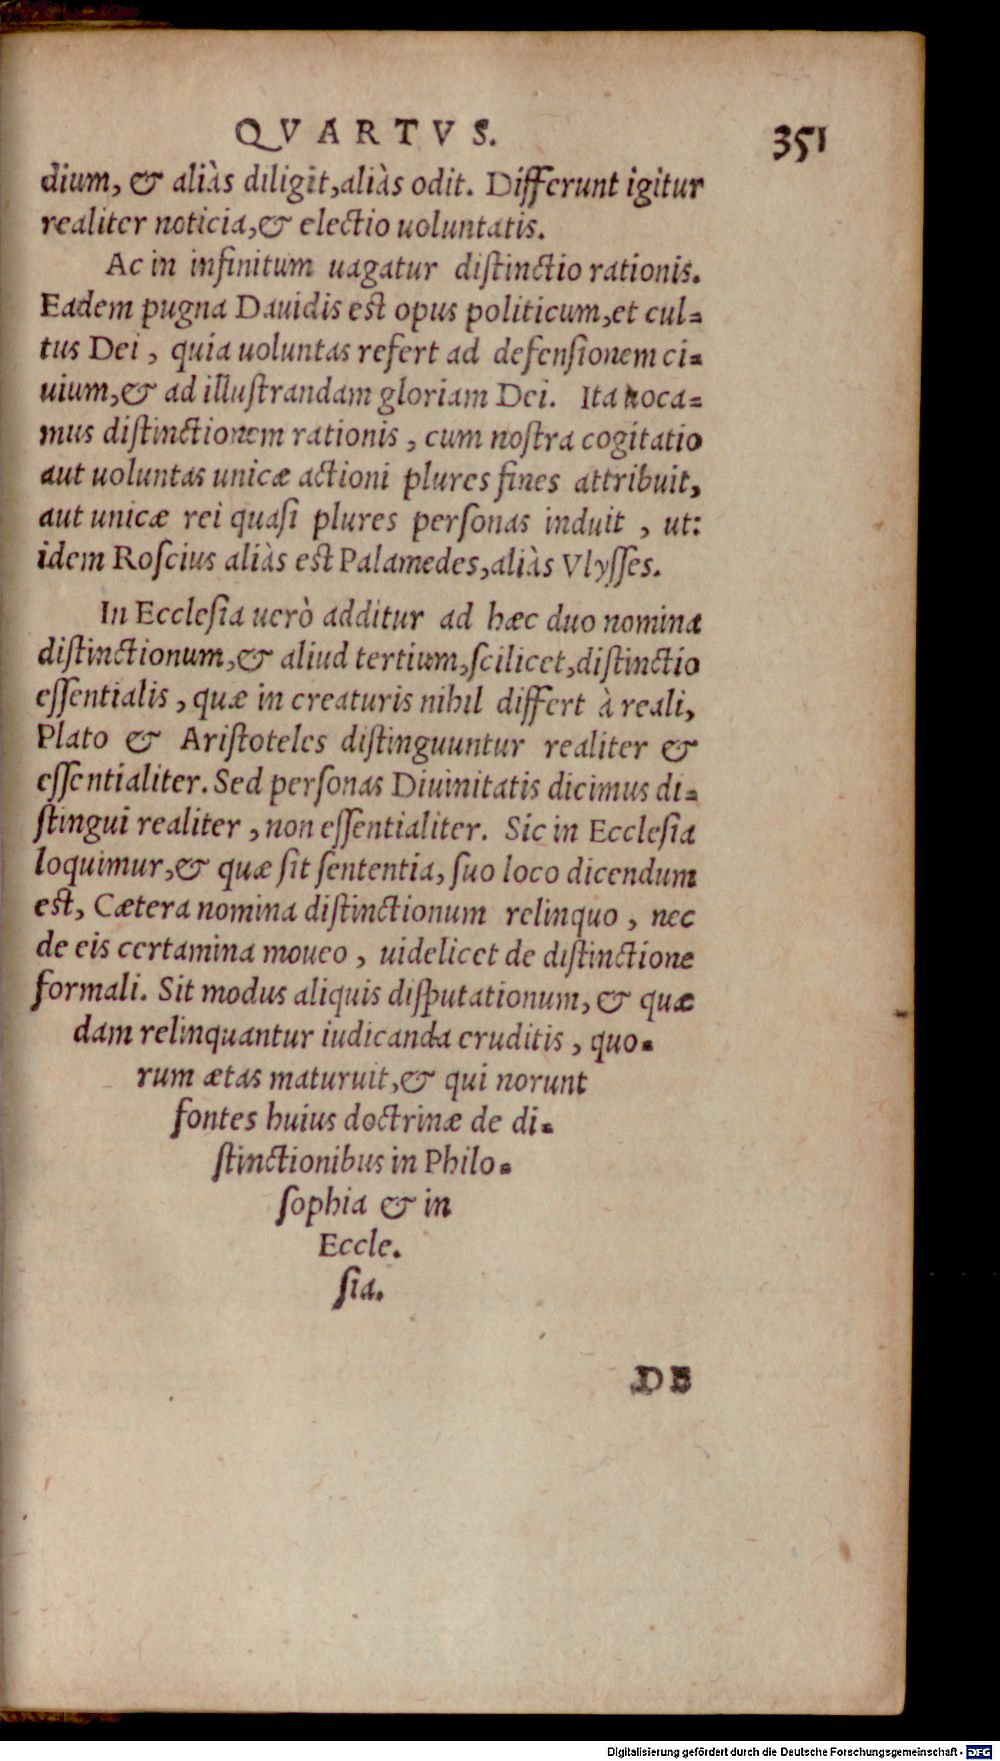 QVARTVS. 351
dium, & aliàs diligit, aliàs odit. Differunt igitur
realiter noticia, & electio uoluntatis.
Ac in infinitum uagatur distinctio rationis.
Eadem pugna Dauidis est opus politicum, et cul-
tus Dei, quia uoluntas refert ad defensionem ci-
uium, & ad illustrandam gloriam Dei. Ita uoca-
mus distinctionem rationis, cum nostra cogitatio
aut uoluntas unicæ actioni plures fines attribuit,
aut unicæ rei quasi plures personas induit, ut:
idem Roscius aliàs est Palamedes, aliàs Vlysses.
In Ecclesia uerò additur ad hæc duo nomina
distinctionum, & aliud tertium, scilicet, distinctio
essentialis, quæ in creaturis nihil differt à reali,
Plato & Aristoteles distinguuntur realiter &
essentialiter. Sed personas Diuinitatis dicimus di-
stingui realiter, non essentialiter. Sic in Ecclesia
loquimur, & quæ sit sententia, suo loco dicendum
est, Cætera nomina distinctionum relinquo, nec
de eis certamina moueo, uidelicet de distinctione
formali. Sit modus aliquis disputationum, & quæ
dam relinquantur iudicanda eruditis, quo-
rum ætas maturuit, & qui norunt
fontes huius doctrinæ de di-
stinctionibus in Philo-
sophia & in
Eccle.
sia.
DE
Digitalisierung gefördert durch die Deutsche Forschungsgemeinschaft - DFG